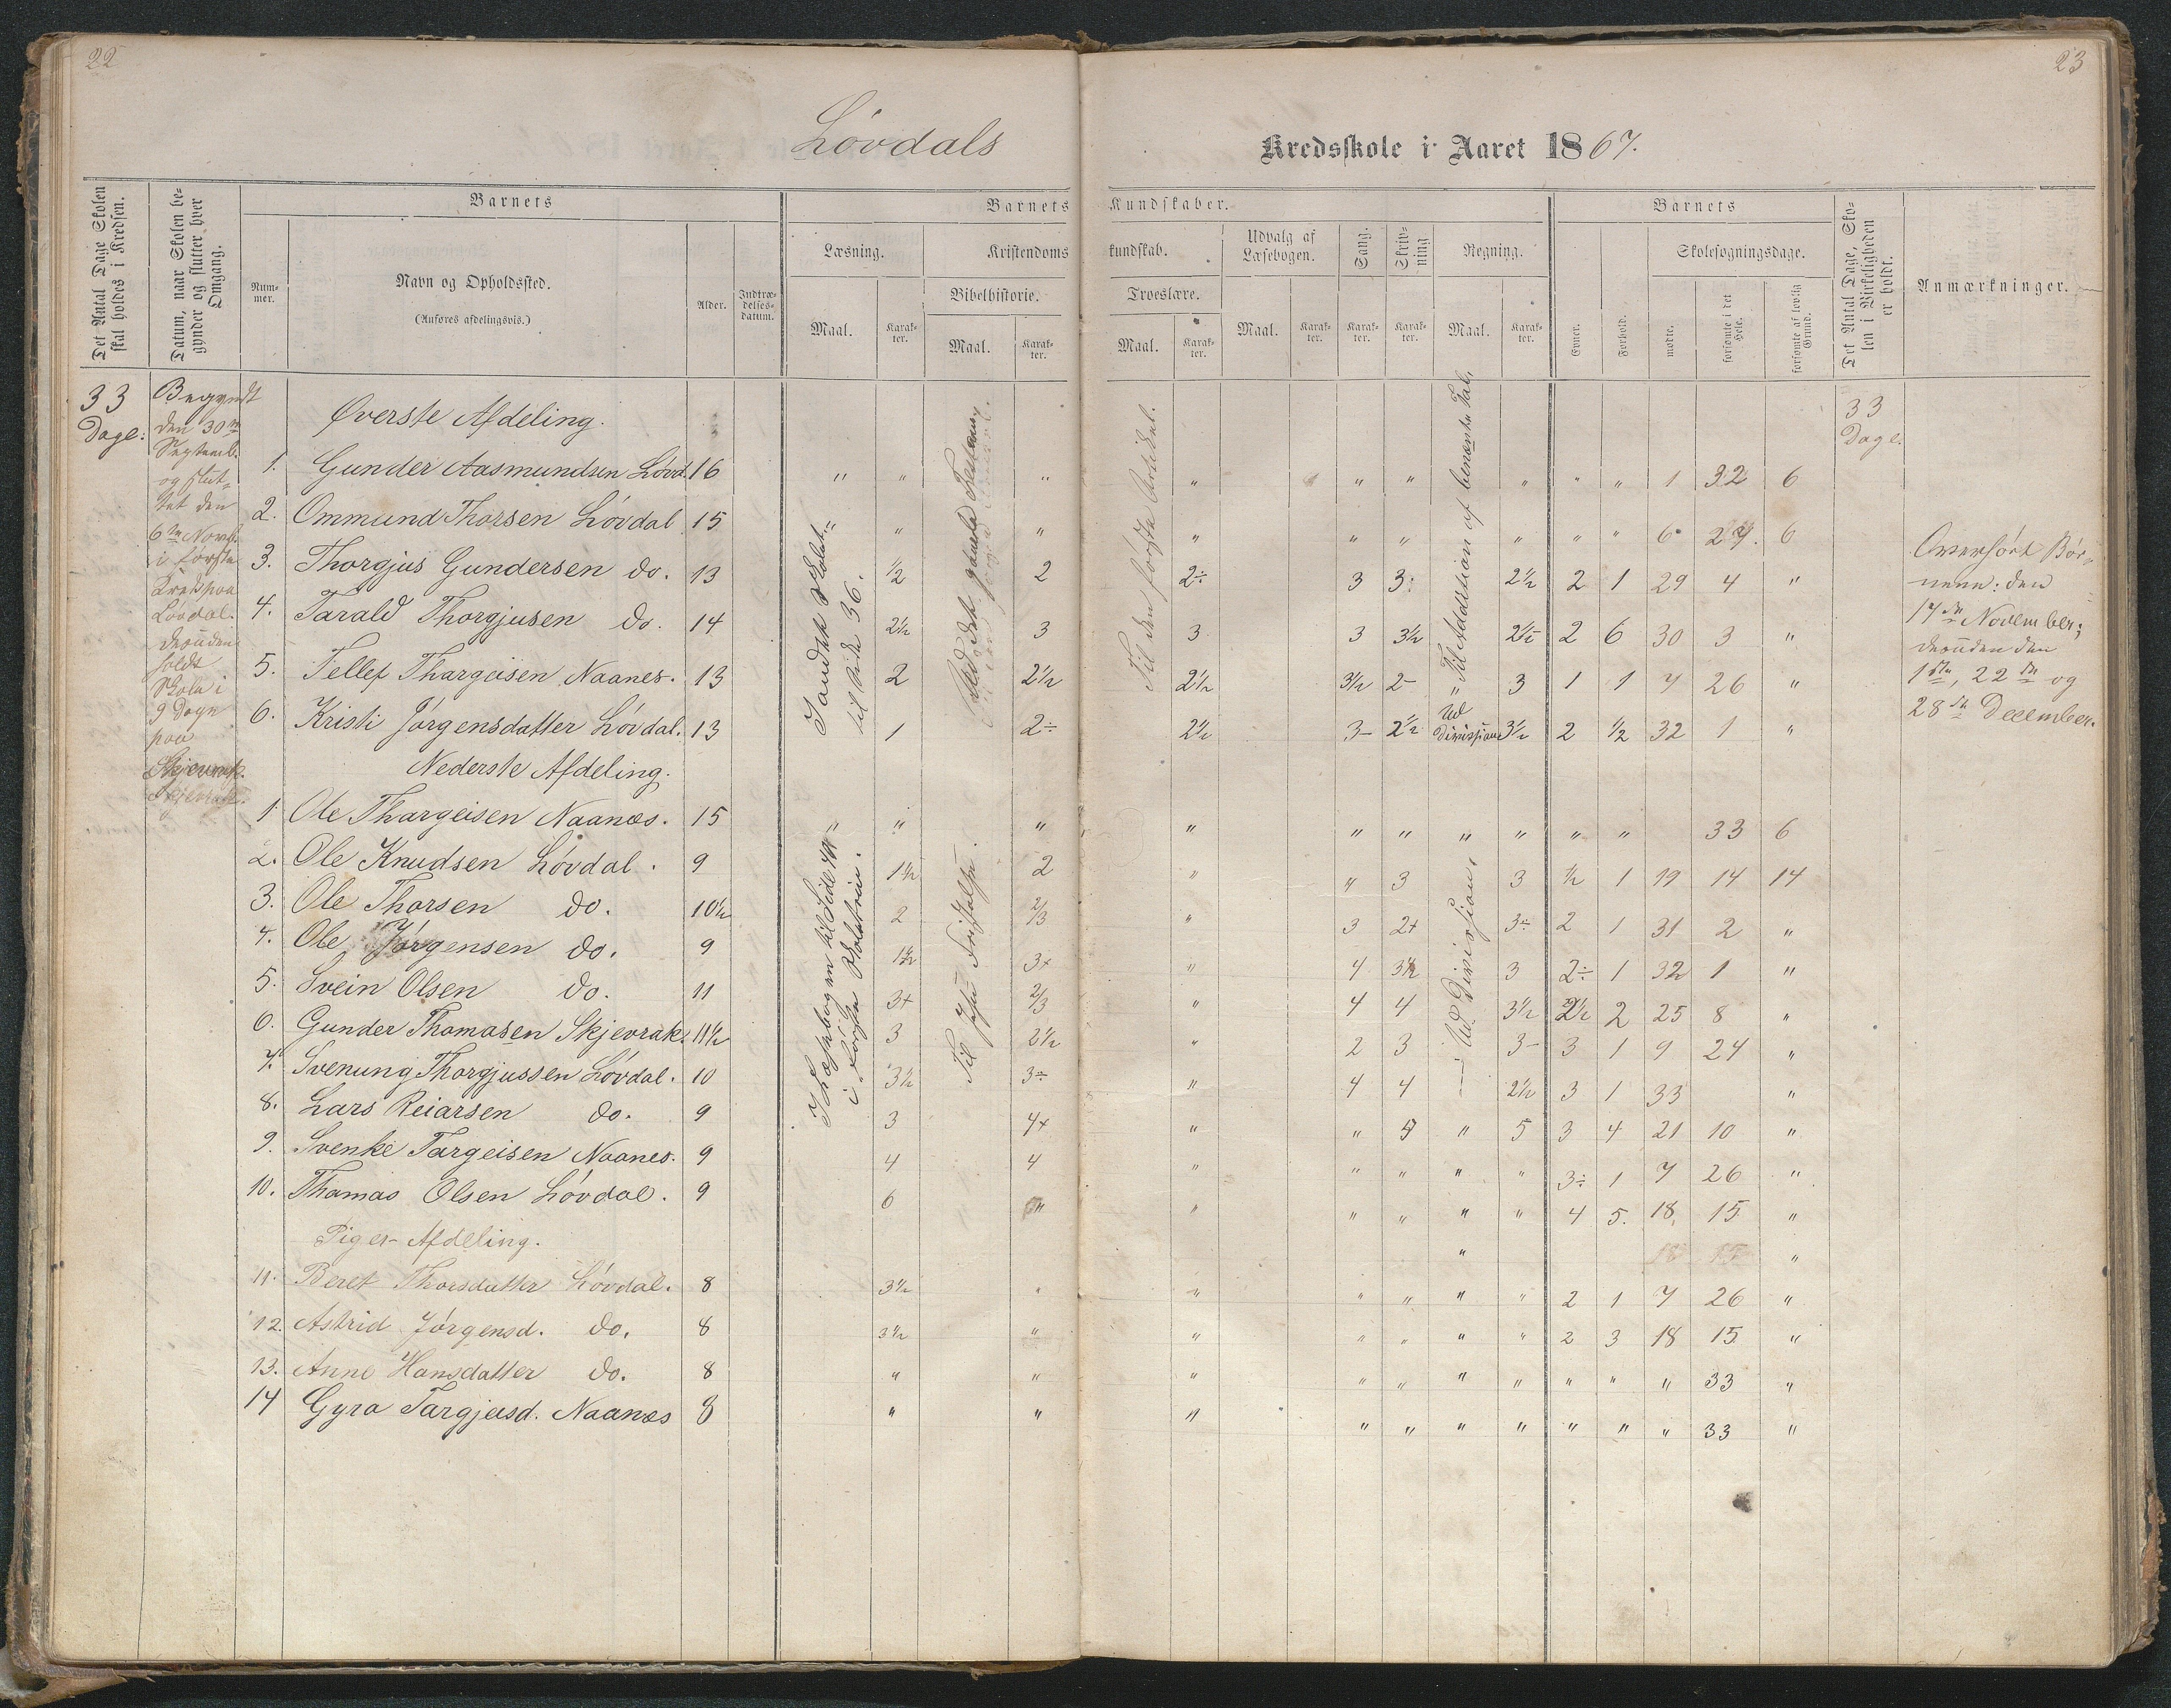 22
23
Løvdals Kredsskole i Aaret 1867.
Det Antal Dage Skolen skal holdes i Kredsen.
Datum, naar Skolen begynder og slutter hver Omgang.
Barnets
Nummer.
Navn og Opholdssted.
(Anføres afdelingsvis.)
Alder.
Indtrædelsesdatum.
Barnets Kundskaber.
Læsning.
Kristendomskundskab.
Udvalg af Læsebogen.
Sang.
Skrivning
Regning.
Bibelhistorie.
Troeslære.
Maal.
Karakter.
Maal.
Karakter.
Maal.
Karakter.
Maal.
Karakter.
Karakter.
Karakter.
Maal.
Karakter.
Barnets
Evner.
Forhold.
Skolesøgningsdage.
mødte.
forsømte i det Hele.
forsømte af lovlig Grund.
Det Antal Dage, Skolen i Virkeligheden er holdt.
Anmærkninger.
33
Dage:
Begyndt
den 30te
Septemb.
og slut-
tet den
6te Novb.
i første
Kreds paa
Løvdal.
desuden
holdt
Skole i
9 Dage
paa
Skjevrak.
Øverste Afdeling.
1. Gunder Aasmundsen Løvd. 16 " " " " " " " " " 1 32 6
2. Ommund Thorsen Løvdal 15 " " " " " " " " " 6 27. 6
3. Thorgjus Gundersen do. 13 1/2 2 2÷ 3 3: 2½ 2 1 29 4 "
4. Tarald Thorgjusen do. 14 2½ 3 3 3 3½ 2½ 2 6 30 3 "
5. Tellef Thargeisen Naanes. 13 2 2½ 2½ 3½ 2- " 3 1 1 7 26 "
6. Kristi Jørgensdatter Løvdal. 13 1 2÷ 2½ 3- 2½ Ud Division 3½ 2 1/2 32 1 "
til Side 36.
Til den første Artikel.
Til Addition af benævnte Tal,
Nederste Afdeling.
1. Ole Thargeisen Naanæs. 15 " " " " " " " " " 33 6
2. Ole Knudsen Løvdal. 9 1½ 2 " " 3 3 ½ 1 19 14 14
3. Ole Thorsen do. 10½ 2 2/3 " 3 2+ 3÷ 2 1 31 2 "
4. Ole Jørgensen do. 9 1½ 3+ " 4 3½ 3 2÷ 1 32 1 "
5. Svein Olsen do. 11 3+ 2/3 " 4 4 3½ 2½ 2 25 8 "
6. Gunder Thomasen Skjevrak. 11½ 3 2½ " 2 3 3- 3 1 9 24 "
7. Svenung Thorgjussen Løvdal. 10 3½ 3÷ " 4 4 2½ 3 1 33 "
8. Lars Reiarsen do. 9 3 4+ " " 5 " 5 3 4 21 10 "
9. Svenke Targeisen Naanes. 9 4 4 " " " " " 3÷ 1 7 26 "
10. Thomas Olsen Løvdal. 9 6 " " " " " " 4 5. 18, 15 "
I Læsebogen til Side
i første Skoletrin.
Til Jesu
Ud Division,
Piger-Afdeling.
" 18 15 "
11. Beret Thorsdatter Løvdal. 8 3½ " " " " " " 2 1 7 26 "
12. Astrid Jørgensd. do. 8 3½ " " " " " " 2 3 18 15 "
13. Anne Hansdatter do. 8 " " " " " " " " " " 33 "
14 Gyro Targjeisd. Naanæs 8 " " " " " " " " " " 33 "
33
Dage.
Overhørt Bør-
nene: den
17de November;
desuden den
1ste, 22de og
28de December.